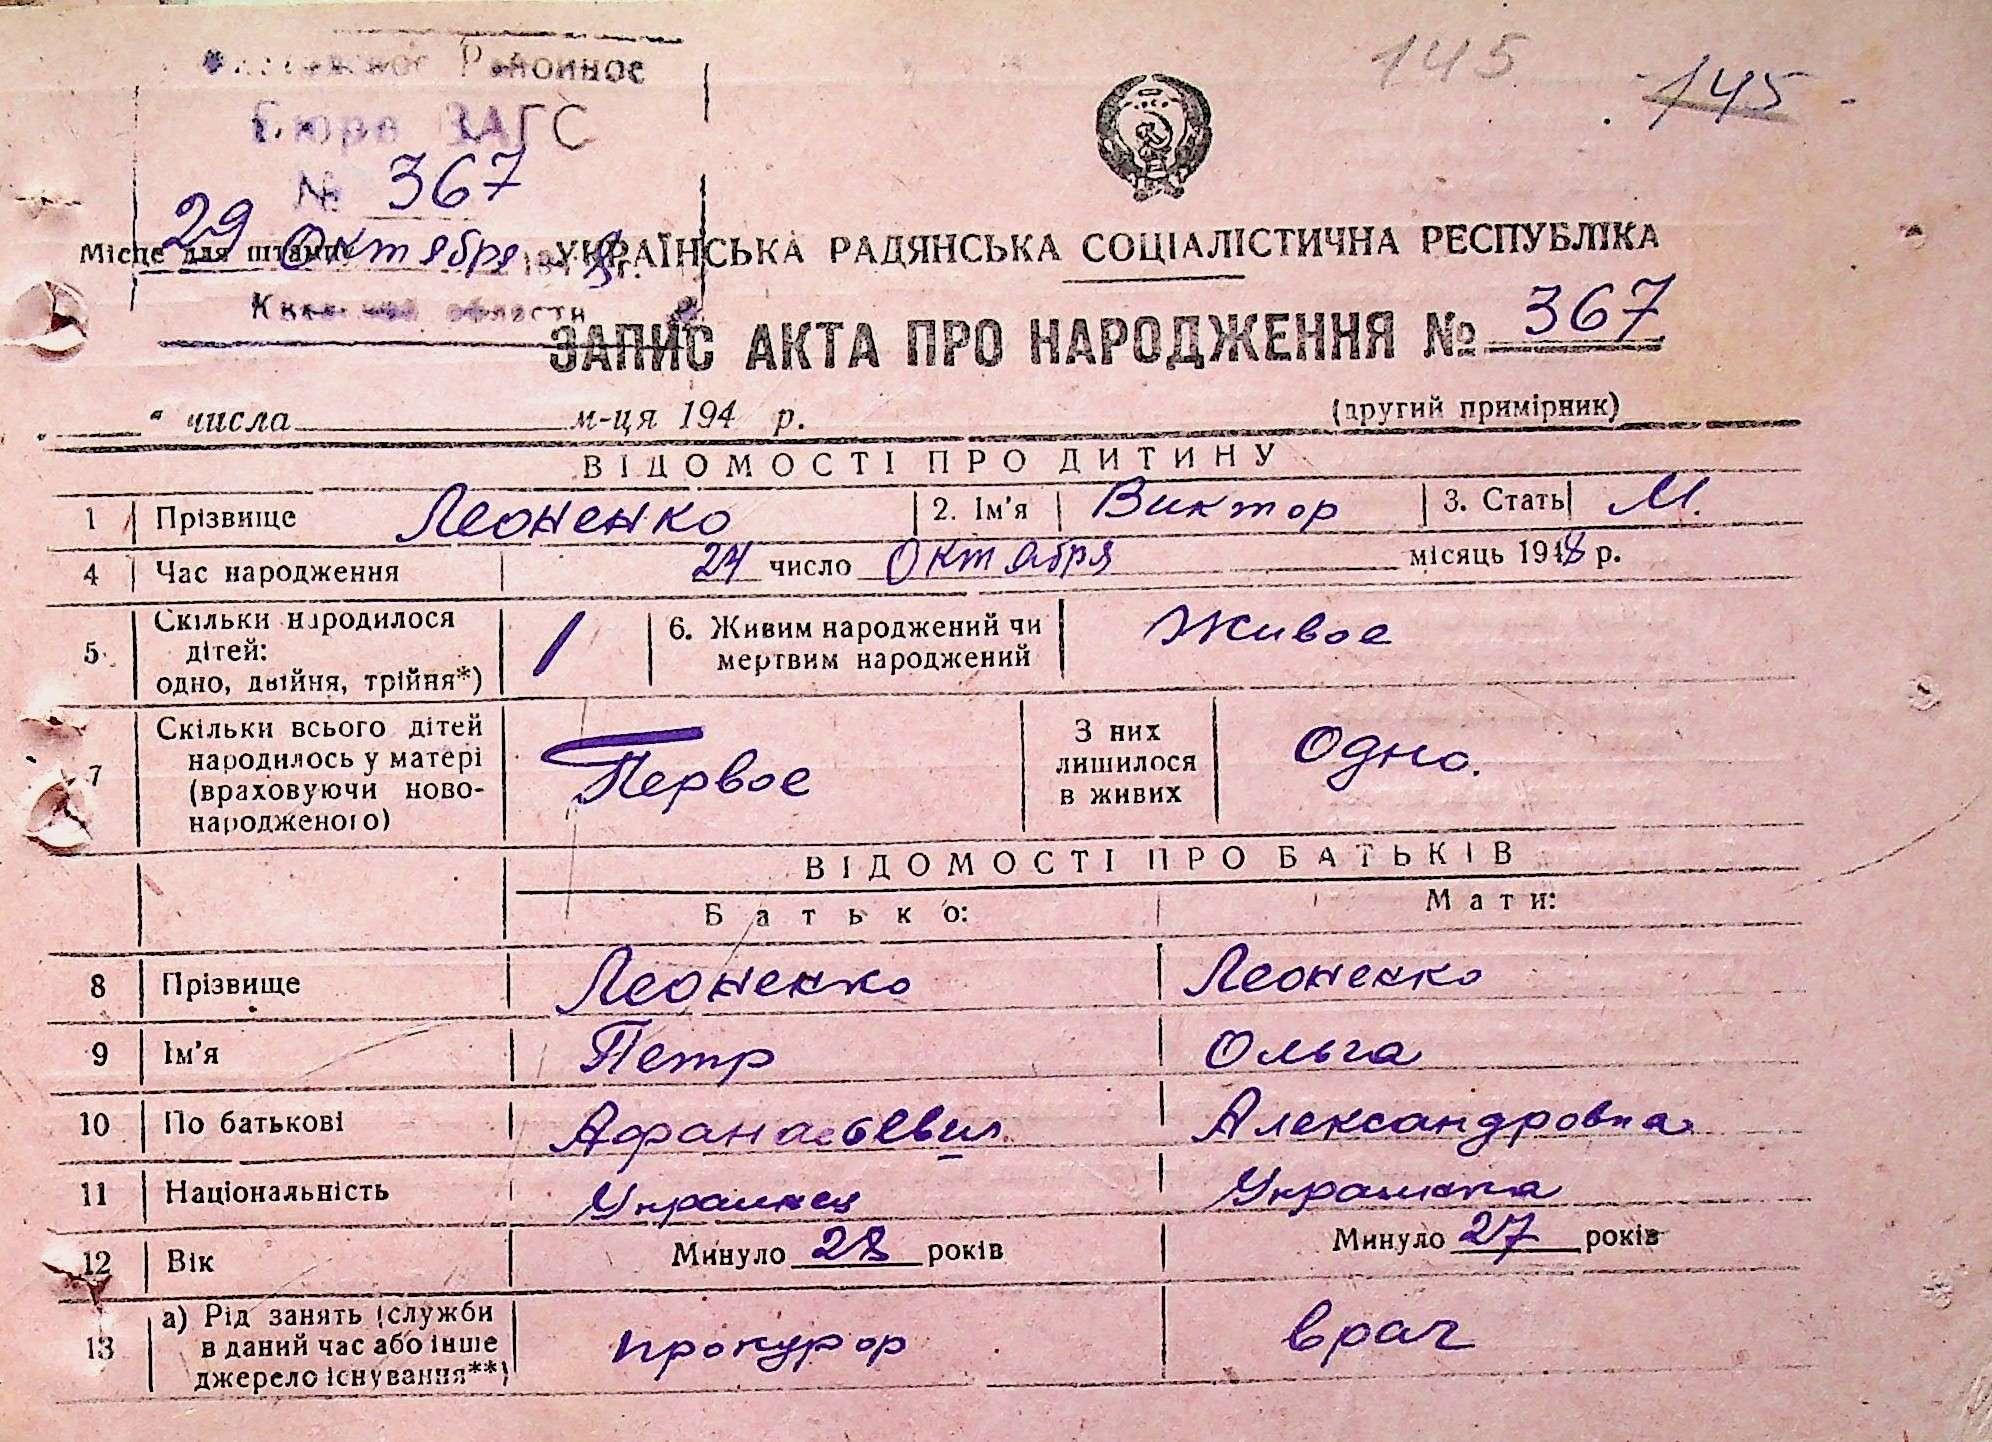 145
145
Районное
Бюро ЗАГС
№ 367
29 Октября 1948 г.
Місце для штампу
области
УКРАЇНСЬКА РАДЯНСЬКА СОЦІАЛІСТИЧНА РЕСПУБЛІКА
ЗАПИС АКТА ПРО НАРОДЖЕННЯ № 367
" " числа м-ця 194 р. (другий примірник)
ВІДОМОСТІ ПРО ДИТИНУ
1 Прізвище Леоненко 2. Ім'я Виктор 3. Стать М.
4 Час народження 24 число Октября місяць 1948 р.
5 Скільки народилося дітей: одно, двійня, трійня*) 1 6. Живим народжений чи мертвим народжений Живое
7 Скільки всього дітей народилось у матері (враховуючи ново-народженого) Первое З них лишилося в живих Одно.
ВІДОМОСТІ ПРО БАТЬКІВ
Батько: Мати:
8 Прізвище Леоненко Леоненко
9 Ім'я Петр Ольга
10 По батькові Афанасьевич Александровна
11 Національність Украинец Украинка
12 Вік Минуло 28 років Минуло 27 років
13 а) Рід занять (служби в даний час або інше джерело існування**) прокурор врач